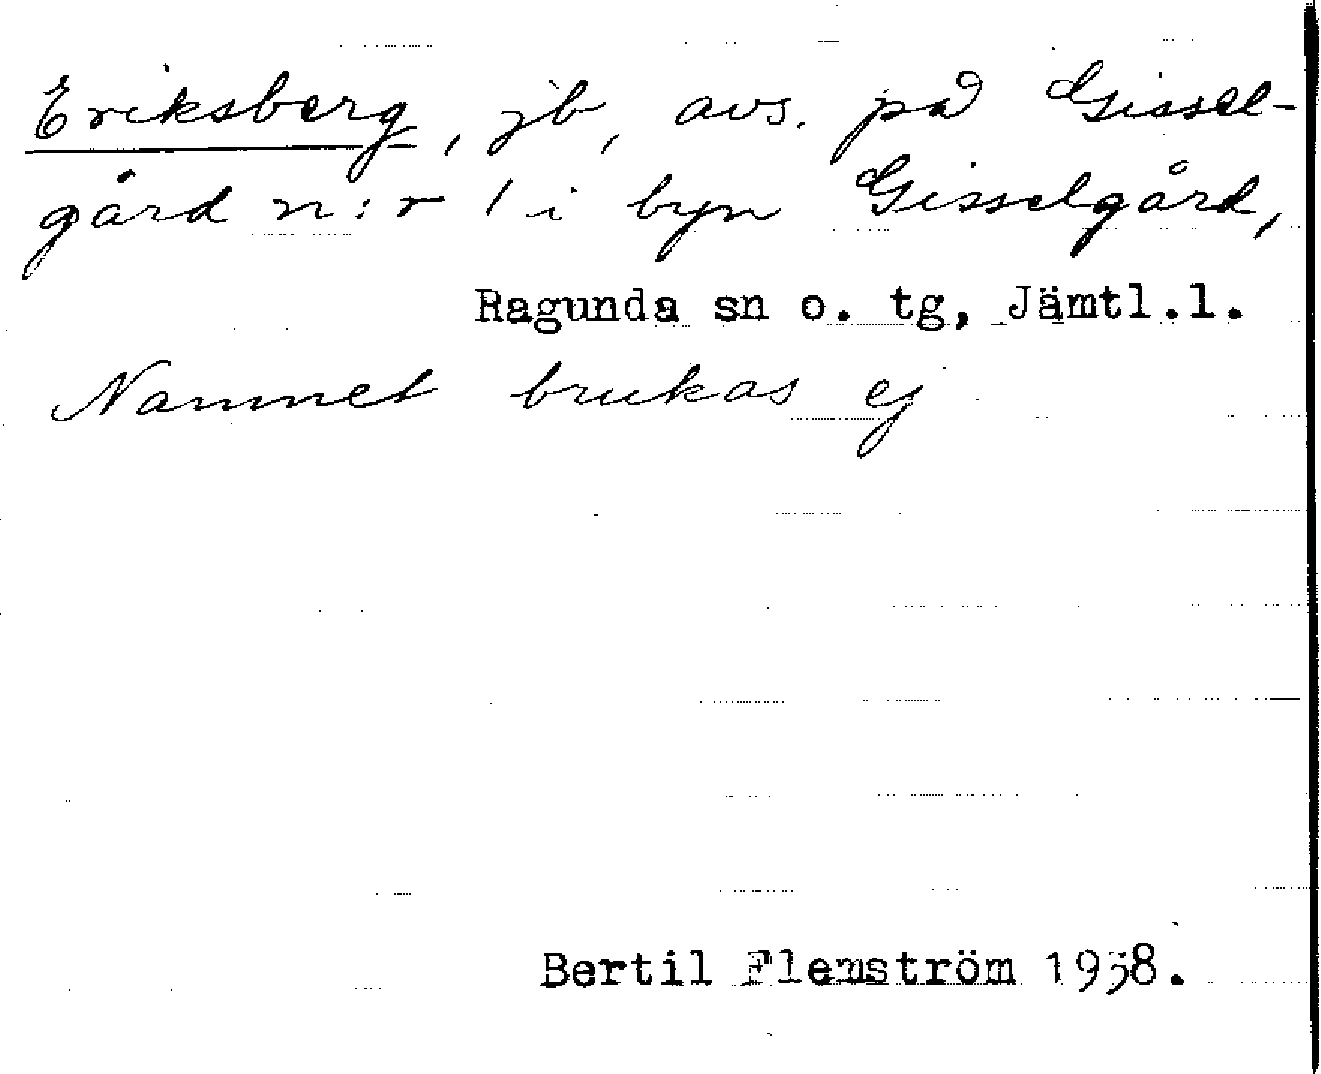 Eriksberg, jb, avs. på Gissel-
gård n:r 1 i byn Gisselgård,
Ragunda sn o. tg, Jämtl.l.
Namnet brukas ej
Bertil Flemström 1958.